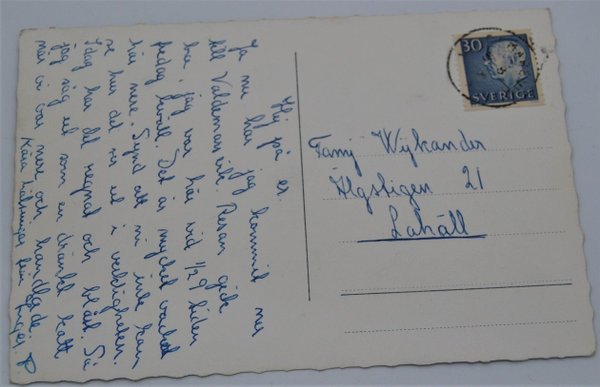 Hej på er.
Ja nu har jag kommit ner
till Valdemarsvik. Resan gick
bra, jag var här vid 1/2 9 tiden
fredag kväll. Det är mycket vackert
här nere. Synd att ni inte kan
se hur det ser ut i verkligheten.
Idag har det regnat och blåst. Så
jag såg ut som en dränkt katt
när vi var nere och handlade.
Kära hälsningar från Inger.
Familj Wijkander
Älgstigen 21
Lahäll
30
SVERIGE